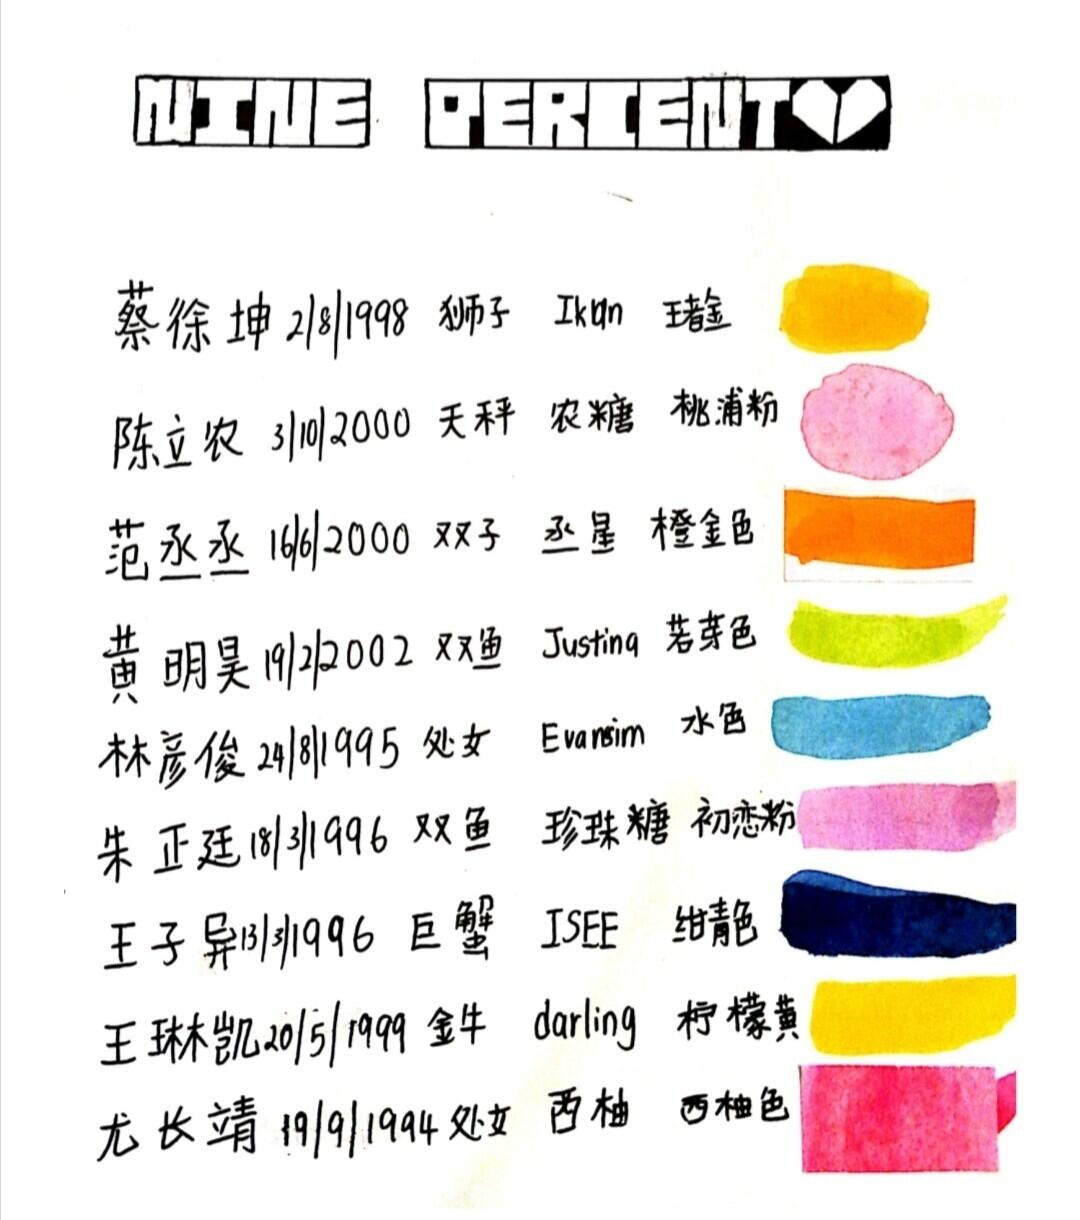 NINE PERCENT
蔡徐坤 2/8/1998 狮子 Ikun 琽金
陈立农 3/10/2000 天秤 农糖 桃浦粉
范丞丞 16/6/2000 双子 丞星 橙金色
黄明昊 19/2/2002 双鱼 Justina 若芽色
林彦俊 24/8/1995 处女 Evansim 水色
朱正廷 18/3/1996 双鱼 珍珠糖 初恋粉
王子异 13/3/1996 巨蟹 ISEE 绀青色
王琳凯 20/5/1999 金牛 darling 柠檬黄
尤长靖 19/9/1994 处女 西柚 西柚色